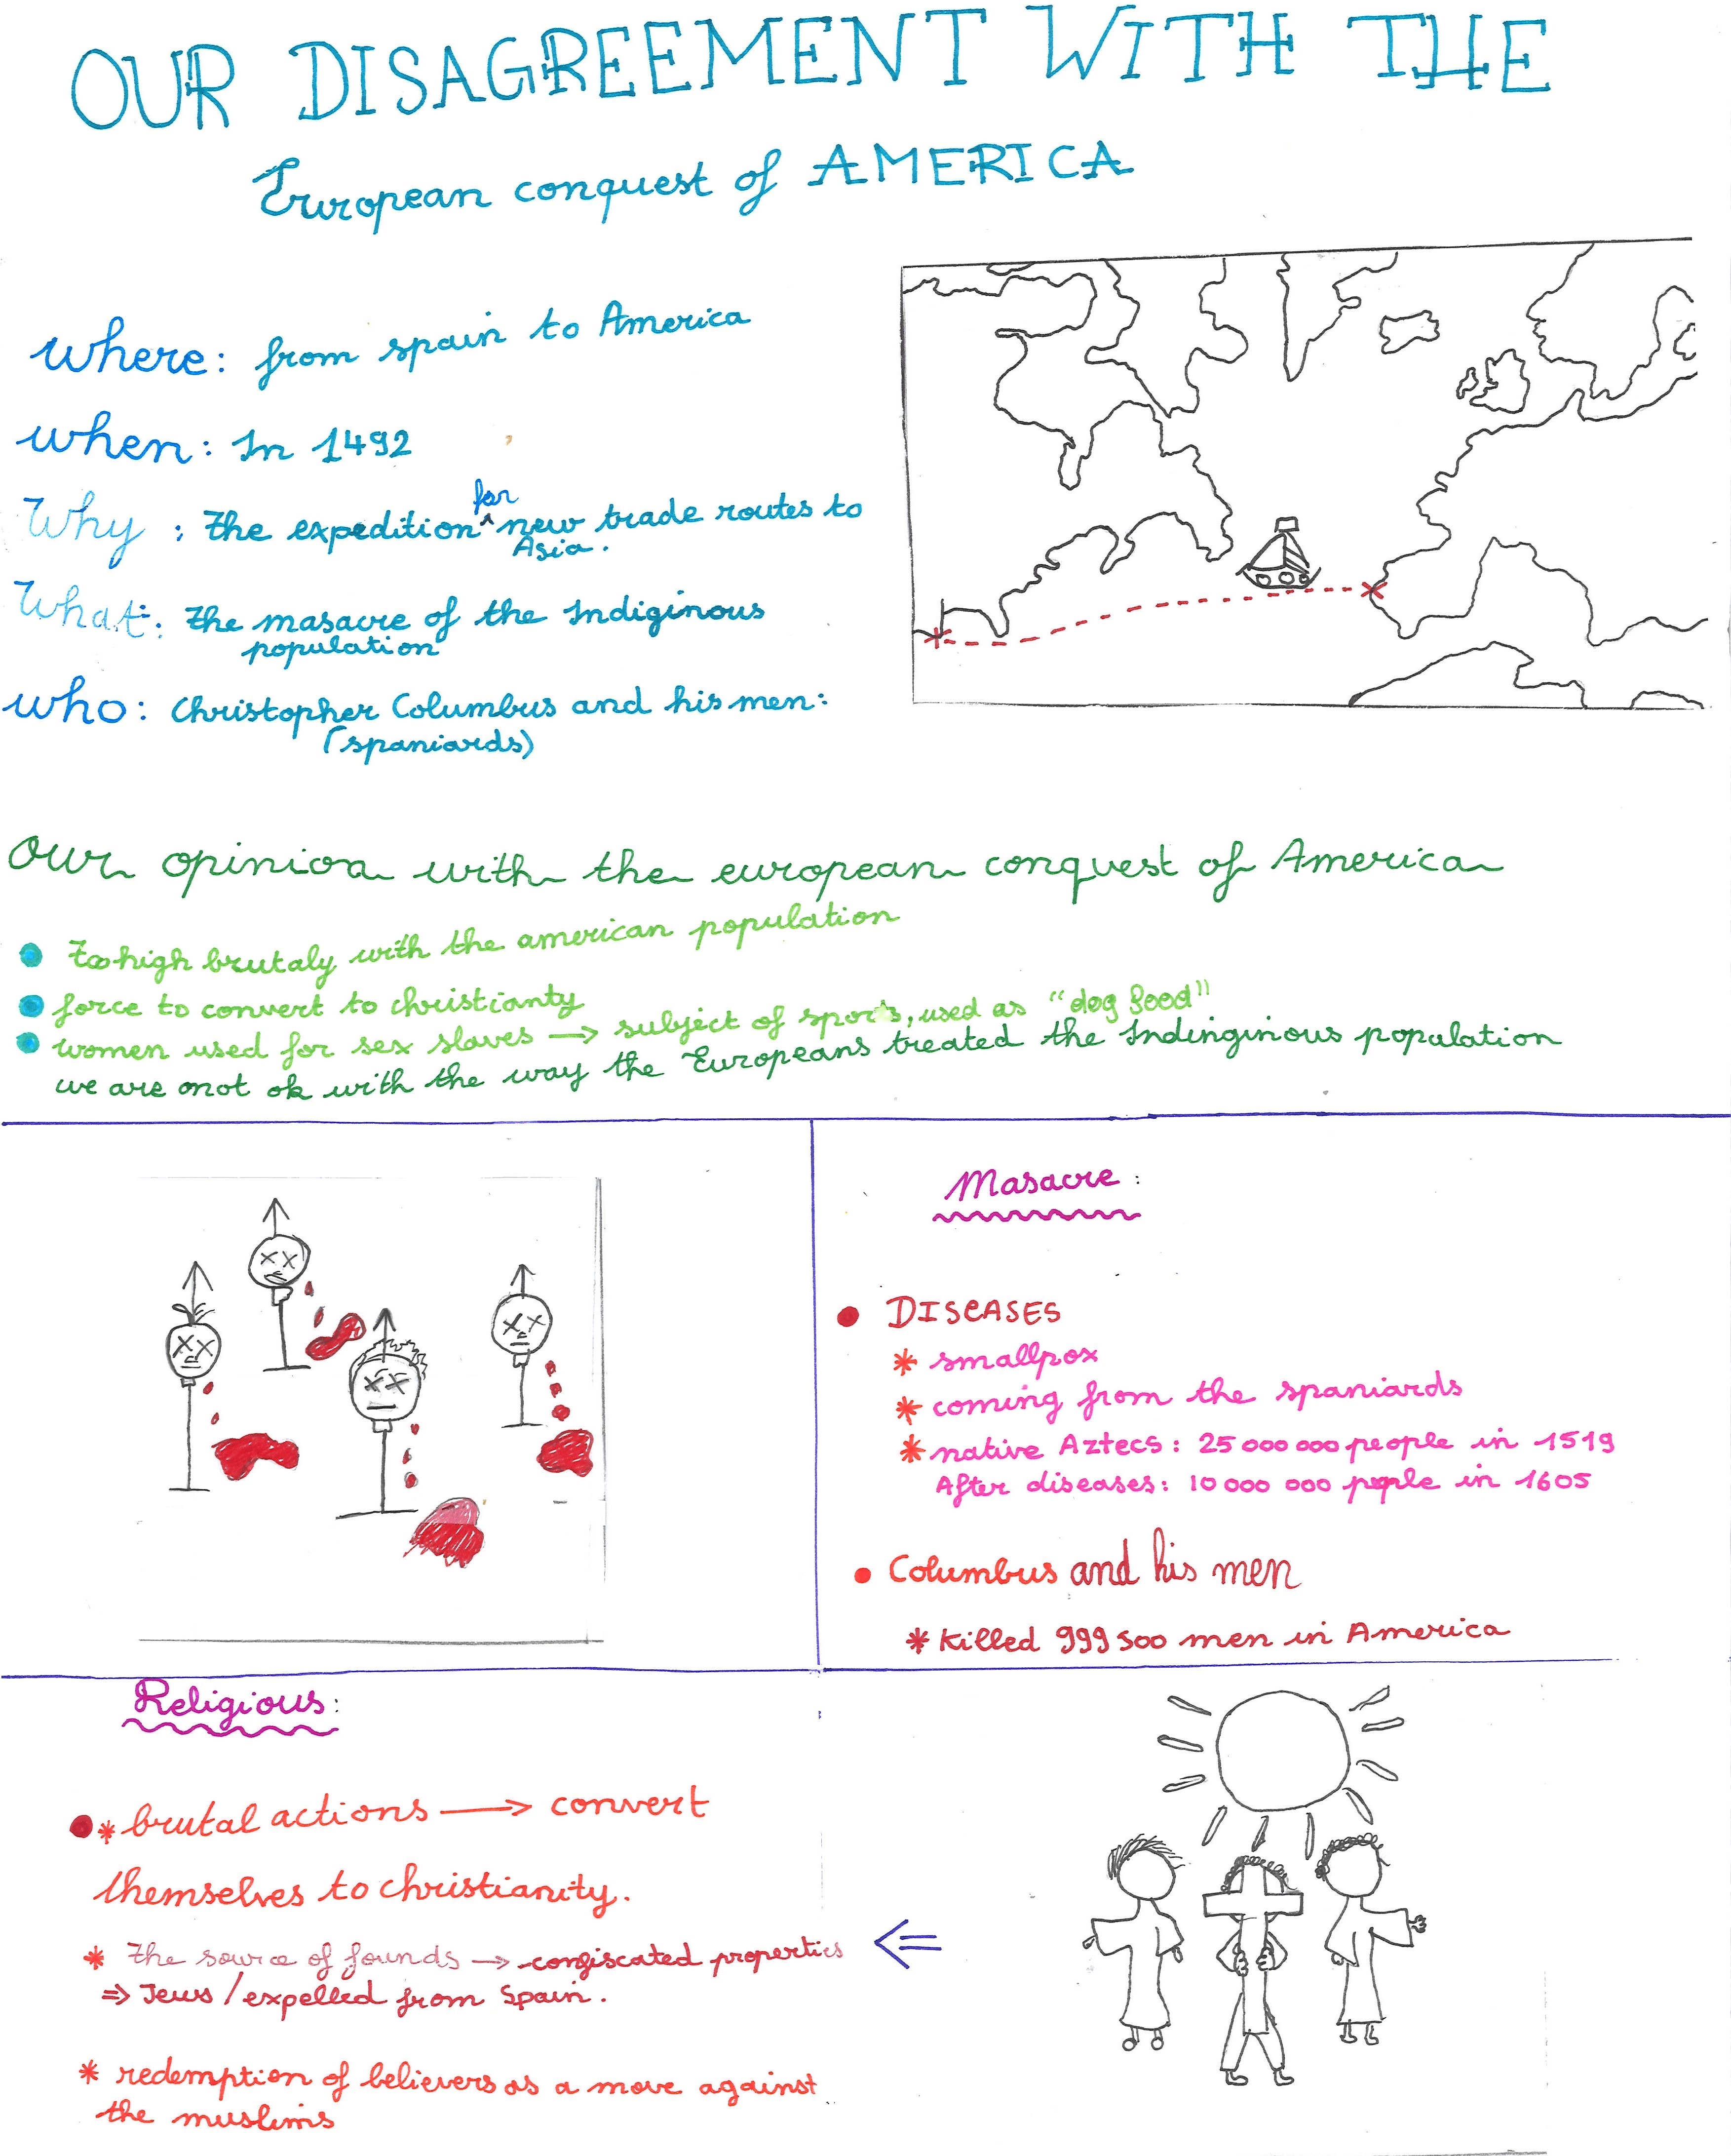 OUR DISAGREEMENT WITH THE
European conquest of AMERICA
where: from spain to America
when: In 1492
Why: the expedition ^for new trade routes to
Asia.
What: the masacre of the Indiginous
population
who: Christopher Columbus and his men:
(spaniards)
Our opinion with the european conquest of America
too high brutaly with the american population
force to convert to christianty
women used for sex slaves → subject of sports, used as "dog food"
we are not ok with the way the Europeans treated the Indinginious population
Masacre:
DISEASES
* smallpox
* coming from the spaniards
* native Aztecs: 25 000 000 people in 1519
After diseases: 10 000 000 people in 1605
Columbus and his men
* killed 999 500 men in America
Religious:
* brutal actions → convert
themselves to christianity.
* the source of founds → confiscated properties
⇒ Jews / expelled from Spain.
* redemption of believers as a move against
the muslims